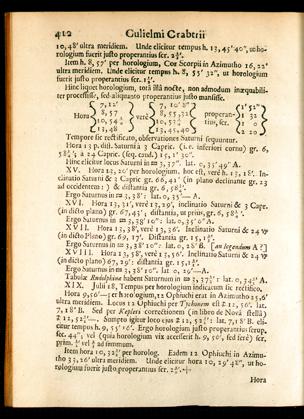 412 Gulielmi Crabtrii
10, 48' ultra meridiem. Unde elicitur tempus h. 13, 45' 40", ut ho-
rologium fuerit justo properantius scr. 2
Item h. 8, 57' per horologium, Cor Scorpii in Azimutho 16, 22'
ultra meridiem. Unde elicitur tempus h. 8, 55' 32", ut horologium
fuerit justo properantius scr. 1
Hinc liquet horologium, totâ illâ nocte, non admodum inæquabili-
ter processisse, sed aliquanto properantius justo mansisse.
Hora 7, 12' verè 7, 10' 8" properan- 1' 52"
8, 57 8, 55, 32 tius
10, 54 10, 52
13, 48 13, 45, 40 2 20
Tempore sic rectificato, observationes Saturni sequuntur.
Hora 13 p. dist. Saturni à 3 Capric. (i.e. inferiori cornu) gr. 6,
58 à 24 Capric. (seq. caud.) 15, 1' 30".
Hinc elicitur locus Saturni in ♒ 3, 37". lat. 0, 35' 49" A.
XV. Hora 13, 20' per horologium, hoc est, verè h. 13, 18'. In-
clinatio Saturni & 3 Capric gr. 66, 41' (in plano declinante gr. 23
ad occidentem) & distantia gr. 6, 58
Ergo Saturnus in ♒ 3, 38'. lat. 0, 35'— A.
XVI. Hora 13, 31', verè 13, 29', inclinatio Saturni & 3 Capr.
(in dicto plano) gr. 67, 43', distantia, ut prius, gr. 6, 58
Ergo Saturnus in ♒ 3, 38' 10" lat. 0, 35' 0" A.
XVII. Hora 13, 38', verè 13, 36'. Inclinatio Saturni & 24 ♑
(in dicto Plano) gr. 69, 17'. Distantia gr. 15, 1
Ergo Saturnus in ♒ 3, 38' 10": lat. 0, 28' B. [an legendum A?]
XVIII. Hora 13, 58', verè 13, 56'. Inclinatio Saturni & 24 ♑
(in dicto plano) 67, 29': distantia gr. 15, 1
Ergo Saturnus in ♒ 3, 38' 10" lat. 0, 29'—A.
Tabulæ Rudolphinæ habent Saturnum in ♒ 3, 37 lat. 0, 34 A.
XIX. Julii 18. Tempus per horologium indicatum sic rectifico.
Hora 9, 56'—: est horologium, 12 Ophiuchi erat in Azimutho 25, 6'
ultra meridiem. Locus 12 Ophiuchi per Tychonem est ♐ 12, 50'. lat.
7, 18' B. Sed per Kepleri correctionem (in libro de Nova stellâ)
♐ 12, 52 — Sumpto igitur loco ejus ♐ 12, 52 lat. 7, 18' B. eli-
citur tempus h. 9, 55' 16". Ergo horologium justo properantius fuerit
scr. 44"; vel (quia horologium vix accesserit h. 9, 50', sed ferè) scr.
prim. ad summum.
Item hora 10, 32 per horolog. Eadem 12 Ophiuchi in Azimu-
tho 35, 26' ultra meridiem. Unde elicitur hora 10, 29' 42", ut ho-
rologium fuerit justo properantius scr. 2
Hora